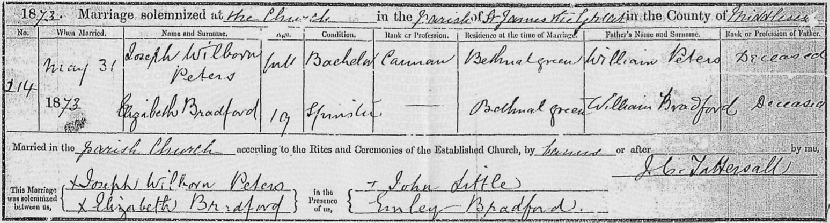 1873. Marriage solemnized at the Church in the parish of St James the Great in the County of Middlesex
No. When Married. Name and Surname. Age. Condition. Rank or Profession. Residence at the time of Marriage. Father's Name and Surname. Rank or Profession of Father.
114 May 31 Joseph Wilborn Peters full Bachelor Carman Bethnal green William Peters Deceased
1873 Elizabeth Bradford 19 Spinster — Bethnal green William Bradford Deceased
Married in the parish Church according to the Rites and Ceremonies of the Established Church, by banns or after by me,
J. C. Tattersall
This Marriage was solemnized between us, x Joseph Wilborn Peters In the Presence of us, John Little
x Elizabeth Bradford Emley Bradford.